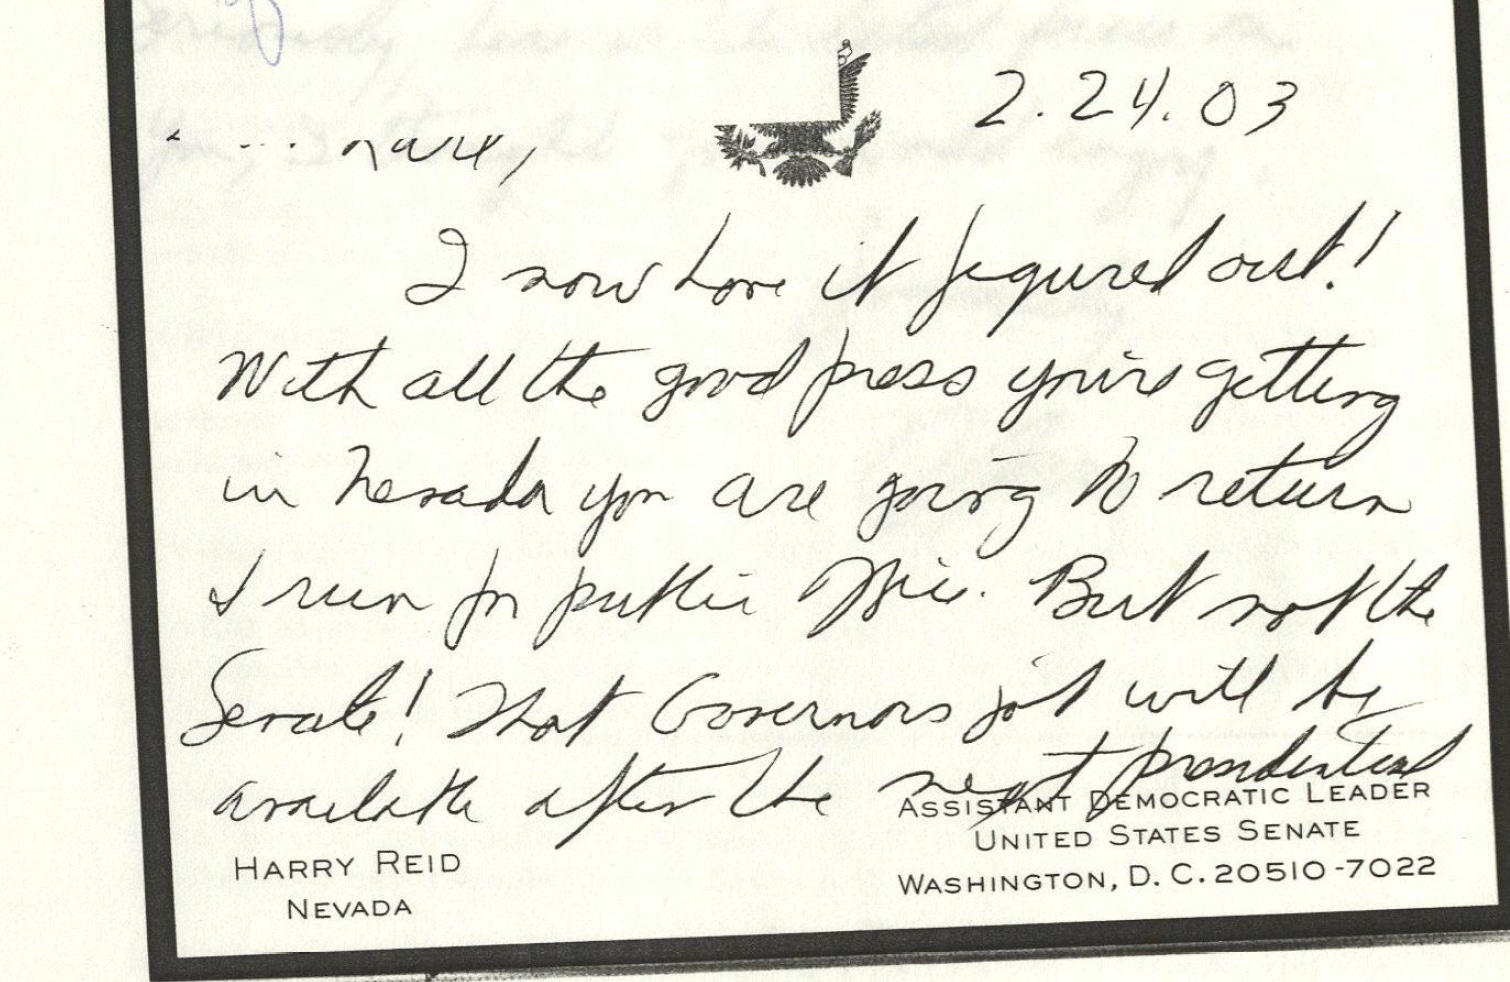 2.24.03
I now have it figured out!
With all the good press you're getting
in Nevada you are going to return
& run for public office. But not the
Senate! That Governors job will be
available after the next presidential
HARRY REID
NEVADA
ASSISTANT DEMOCRATIC LEADER
UNITED STATES SENATE
WASHINGTON, D. C. 20510-7022